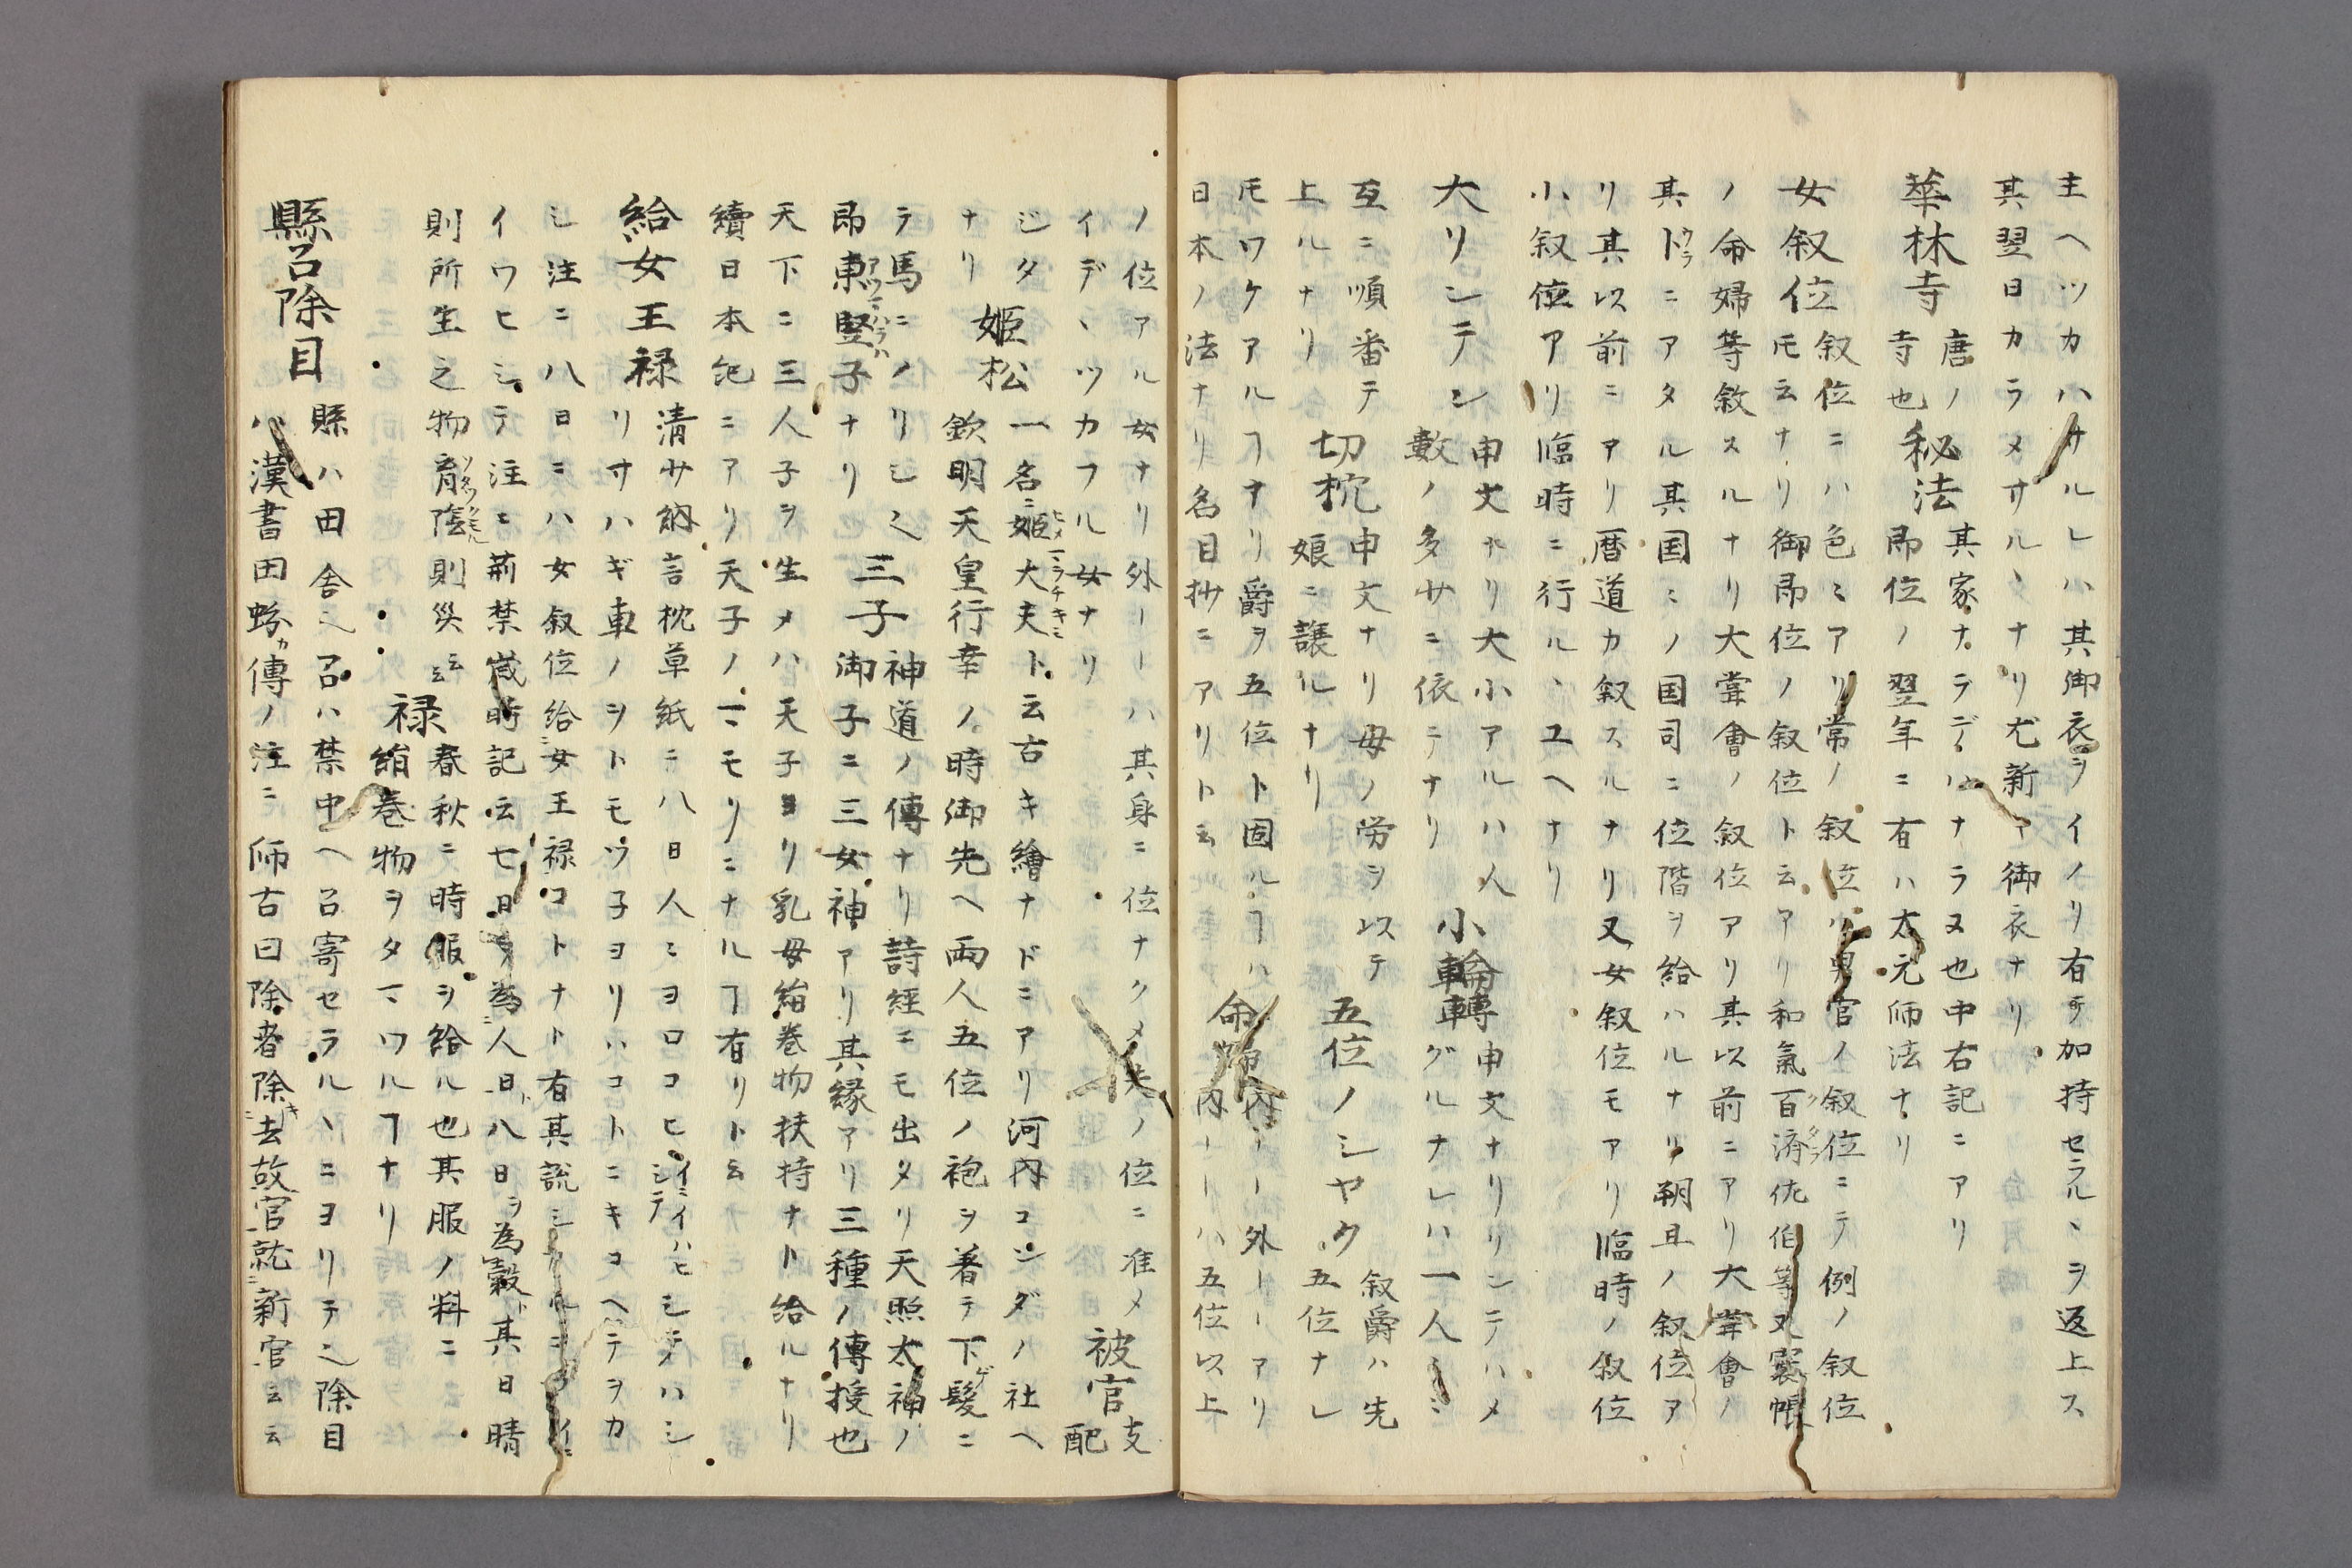 主ヘツカハサルレハ其御衣ヲイノリ有テ加持セラルヽヲ返上ス
其翌日カラメサルヽナリ尤新ア御衣ナリ
華林寺 唐ノ
寺也
秘法 其家ナラデハナラヌ也中右記ニアリ
即位ノ翌年ニ有ハ太元師法ナリ
女叙位 叙位ニハ色ミアリ常ノ叙位ハ男官ノ叙位ニテ例ノ叙位
モ云ナリ御即位ノ叙位ト云アリ和氣百済佐伯等又褰帳
ノ命婦等敘スルナリ大甞會ノ叙位アリ其以前ニアリ大甞會ノ
其卜ニアタル其国ミノ国司ニ位階ヲ給ハルナリ朔旦ノ叙位ア
リ其以前ニアリ暦道カ叙スルナリ又女叙位モアリ臨時ノ叙位
小叙位アリ臨時ニ行ルヽユヘナリ
大リンテン 申文ナリ大小アルハ人
數ノ多サニ依テナリ
小輪轉 申文ナリリンテハメ
グルナレハ一人ミ
互ニ順番テ
切杭 申文ナリ母ノ労ヲ以テ
娘ニ譲ルナリ
五位ノシヤク 叙爵ハ先
五位ナレ
上ルナリ
モワケアルヿナリ爵ヲ五位ト固ルヿハ
命婦 内ーー外ーーアリ
内ーーハ五位以上
日本ノ法ナリ名目抄ニアリト云
ノ位アル女ナリ外ーーハ其身ニ位ナクメ夫ノ位ニ准メ
イデヽツカフル女ナリ
被官 支
配
ジタ
姫松 一名ニ姫大夫ト云古キ繪ナドニアリ河内コンダノ社ヘ
ナリ
欽明天皇行幸ノ時御先ヘ両人五位ノ袍ヲ著テ下髪ニ
ラ馬ニノリシ之
三子 神道ノ傳ナリ詩經ニモ出タリ天照太神ノ
御子ニ三女神アリ其縁アリ三種ノ傳授也
即東竪子ナリ
天下ニ三人子ヲ生メハ天子ヨリ乳母絹巻物扶持ナト給ルナリ
續日本紀ニアリ天子ノマモリニナルヿ有リト云
給女王禄 清サ納言枕草紙ニ八日人ミヨロコヒシテハシ
リサハギ車ノヲトモツ子ヨリハコトニキコヘテヲカ
シ注ニ八日ニハ女叙位給女王禄コトナト有其説シカルニ
イワヒシテ注ニ荊禁歳時記云七日ヲ為人日八日ヲ為糓其日晴
則所生之物育陰則災云云
禄 春秋ニ時服ヲ給ル也其服ノ料ニ
絹巻物ヲタマワルヿナリ
縣召除目 縣ハ田舎之召ハ禁中ヘ召寄セラルヽニヨリテ之除目
ハ漢書田蚡カ傳ノ注ニ師古曰除者除去故官就新官云云